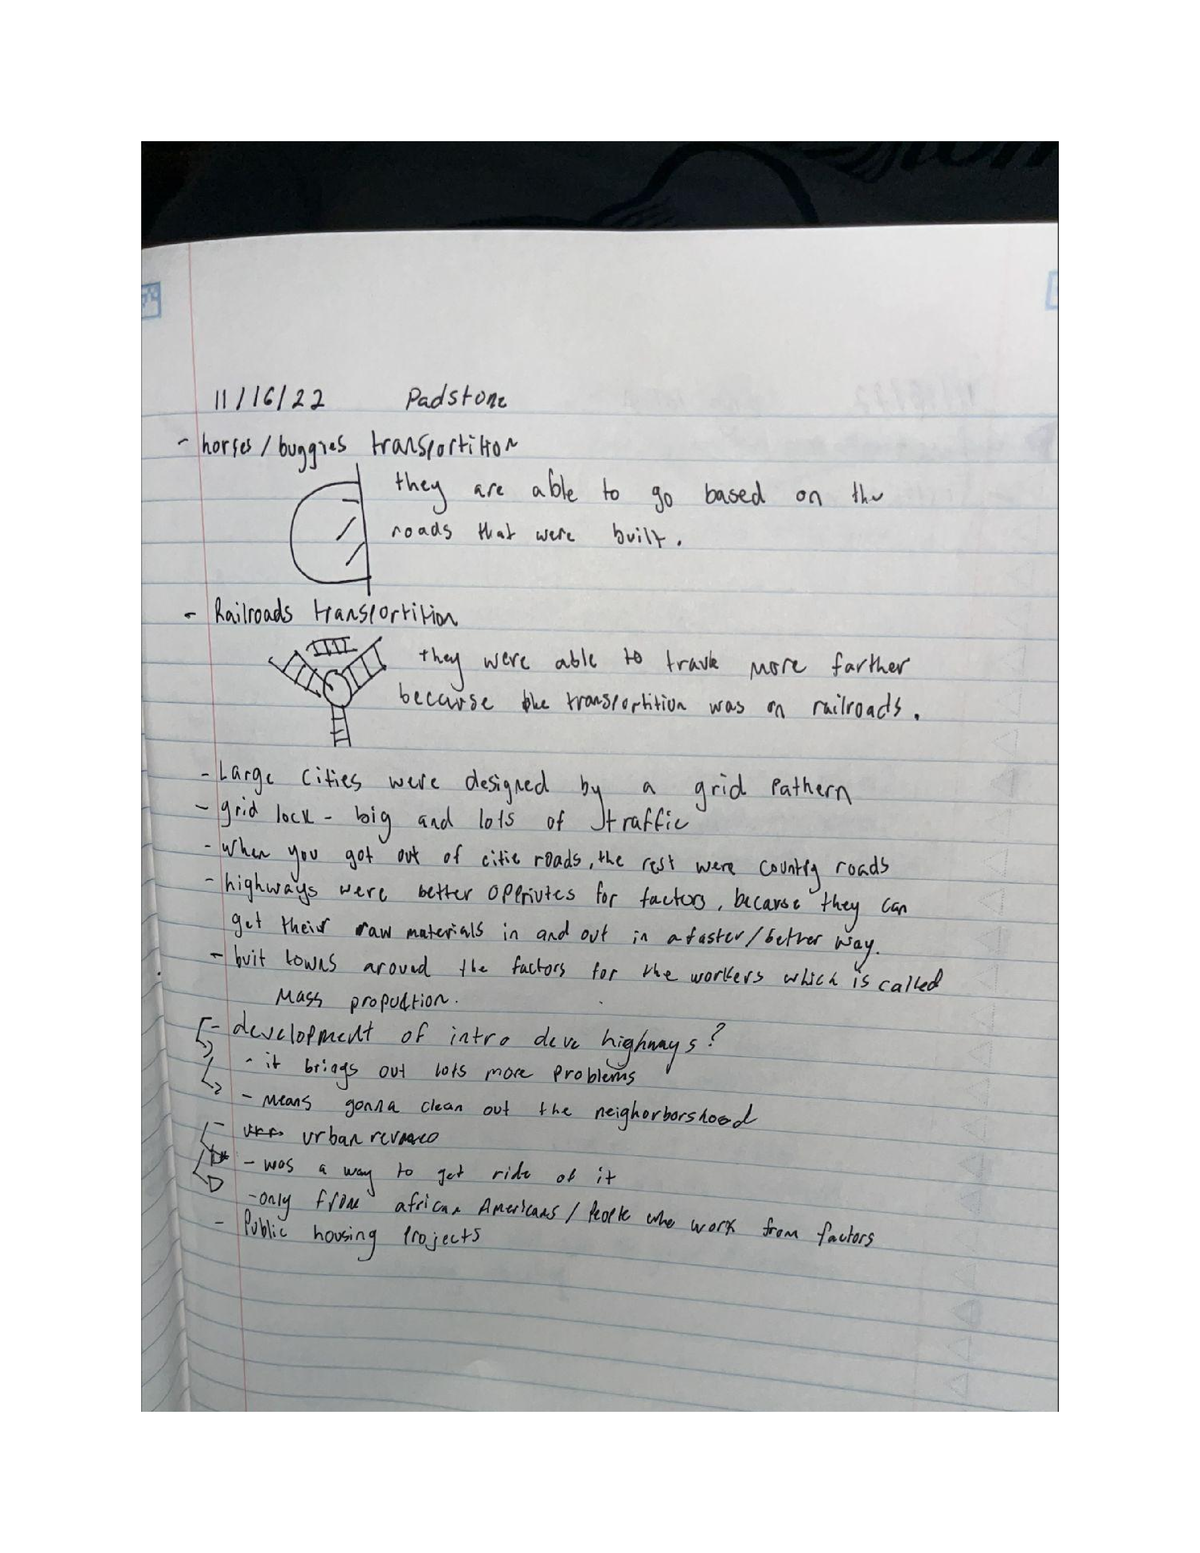 11/16/22 Padstone
- horses/buggies transportition
they are able to go based on the
roads that were built.
- Railroads transportition
they were able to travle more farther
because the transportition was on railroads.
- Large cities were designed by a grid Pathern
- grid lock - big and lots of traffic
- when you got out of citie roads, the rest were country roads
- highways were better for factors, because they can
get their raw materials in and out in a faster/better way.
- buit towns around the factors for the workers which is called
Mass propudtion.
- development of intro deve highways?
- it brings out lots more Problems
- Means gonna clean out the neighorborshood
- urban
- was a way to get ride of it
- only from african Americans / People who work from factors
- Public housing Projects